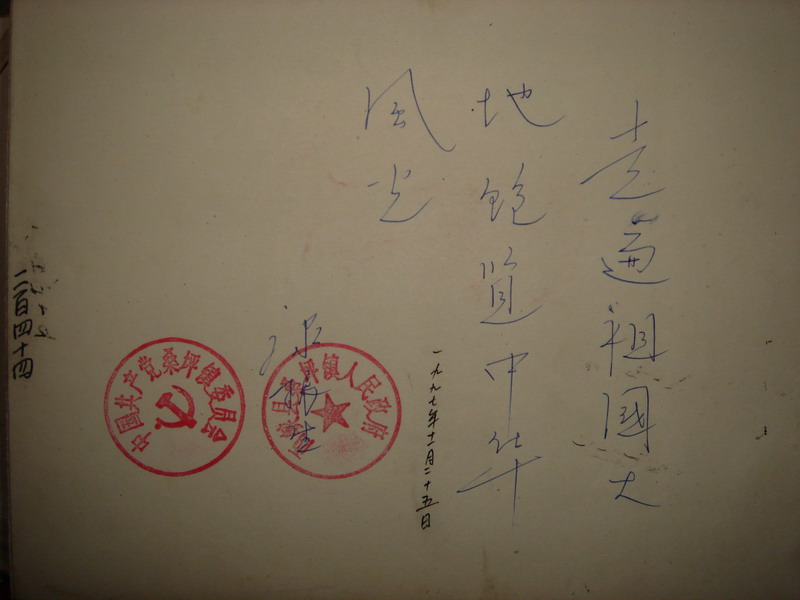 走遍祖国大
地饱览中华
风光
一九九七年十二月二十五日
人民政府
中国共产党桑坪镇委员会
二百四十四